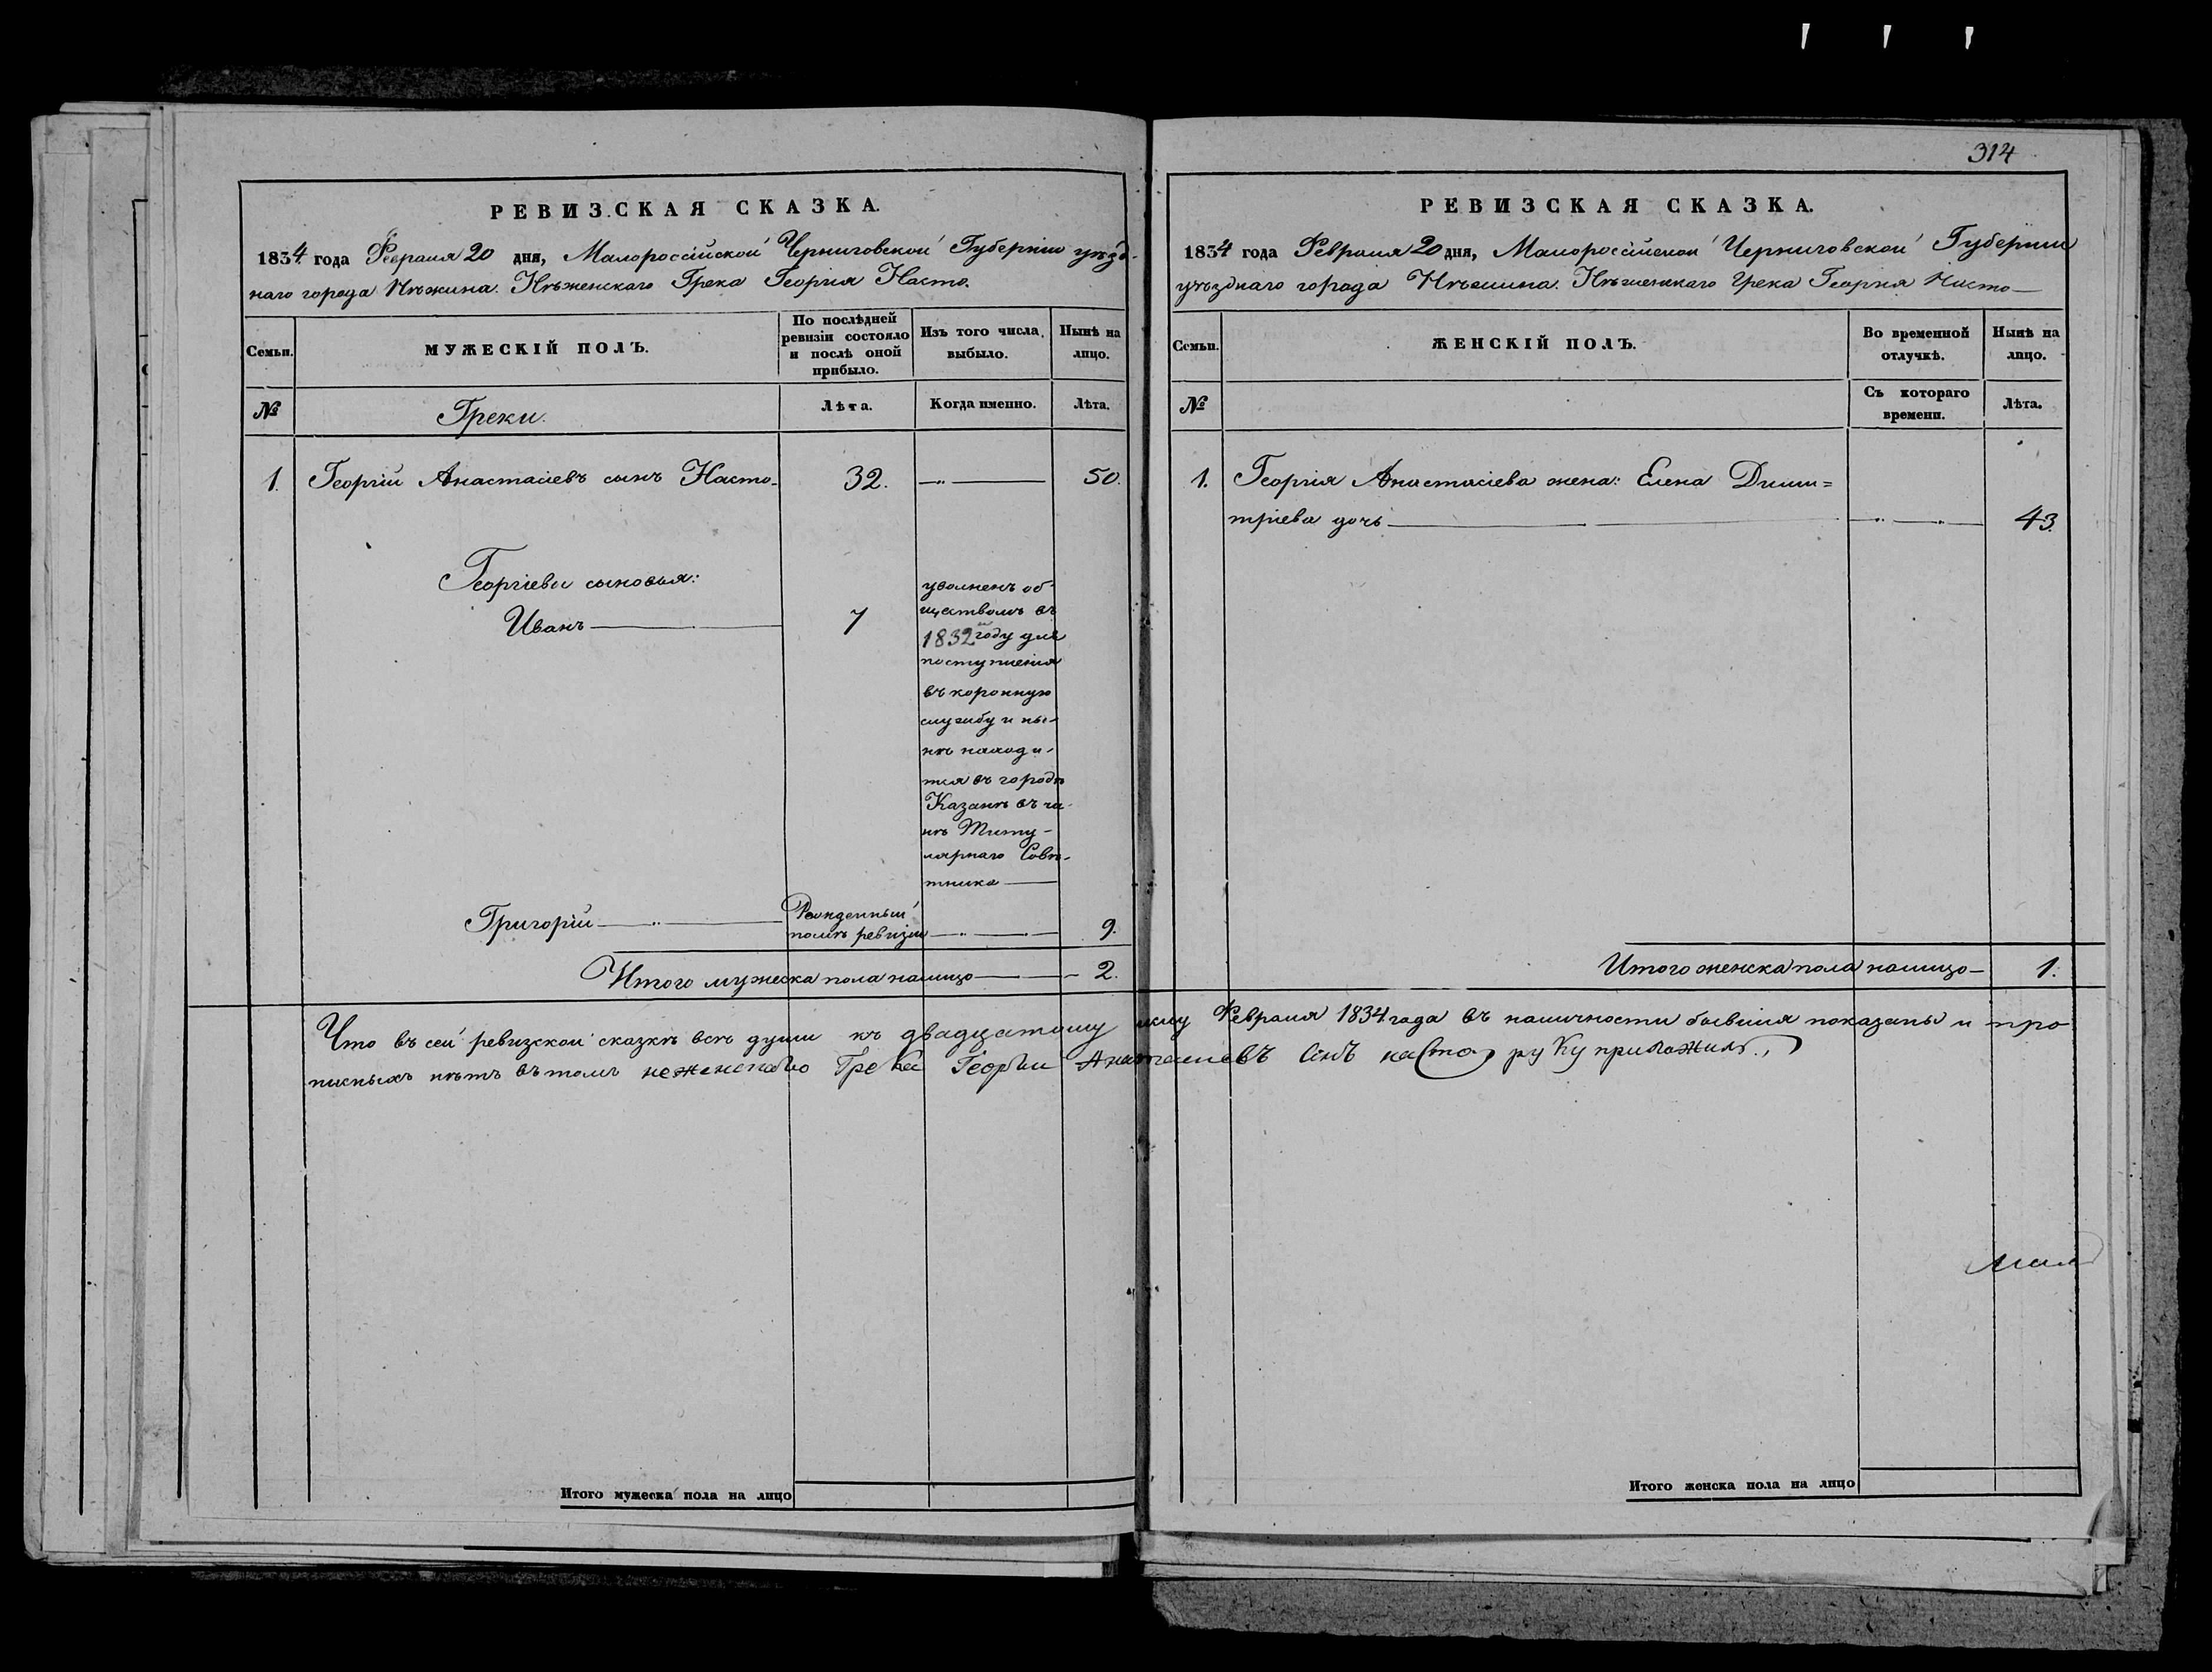 314
РЕВИЗСКАЯ СКАЗКА.
1834 года Февраля 20 дня, Малороссійской Черниговской Губерніи уѣзд-
наго города Нѣжина. Нѣженскаго Грека Георгія Насто.
Семьи.
МУЖЕСКІЙ ПОЛЪ.
По послѣдней
ревизіи состояло
и послѣ оной
прибыло.
Изъ того числа
выбыло.
Нынѣ на
лицо.
№
Греки.
Лѣта.
Когда именно.
Лѣта.
1. Георгій Анастасіевъ сынъ Насто 32. 50.
Георгіевы сыновья:
Иванъ 7
уволненъ об-
ществомъ въ
1832 году для
поступленія
въ коронную
службу и ны-
нѣ находи-
тся въ городѣ
Казанѣ въ чи-
нѣ Титу-
лярнаго Совѣ-
тника
Григорій
Рожденный
послѣ ревизіи
9.
Итого мужеска пола налицо 2.
РЕВИЗСКАЯ СКАЗКА.
1834 года Февраля 20 дня, Малороссійской Черниговской Губерніи
уѣзднаго города Нѣжина. Нѣженскаго Грека Георгія Насто
Семьи.
ЖЕНСКІЙ ПОЛЪ.
Во временной
отлучкѣ.
Нынѣ на
лицо.
№
Съ котораго
времени.
Лѣта.
1. Георгія Анастасіева жена: Елена Дими=
тріева дочь 43.
Итого женска пола налицо 1.
Что въ сей ревизской сказкѣ всѣ души къ двадцатому Февраля 1834 года въ наличности бывшія показаны и про
писныхъ нѣтъ въ томъ Грека Георгіи Анастасиевъ Синъ насто руку приложилъ
Итого мужеска пола на лицо
Итого женска пола на лицо